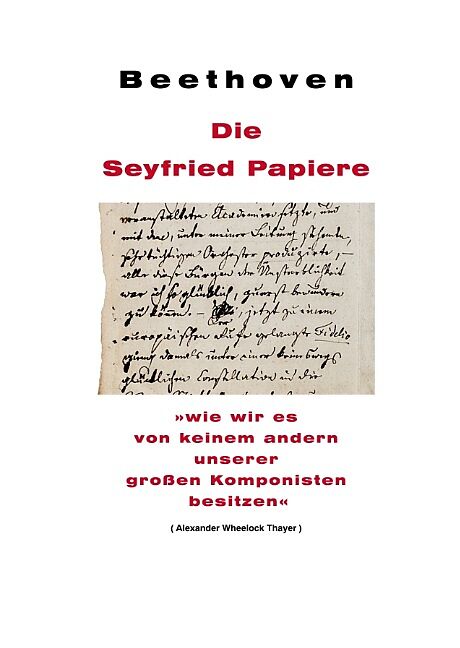 Beethoven
Die
Seyfried Papiere
veranstalteten Academien setzte, und
mit das, unter meiner Leitung stehende,
sehr tüchtigen Orchester produzirte, –
alle diese Bürgen der Unsterblichkeit
war ich so glücklich, zuerst bewundern
zu können. – Der, jetzt zu einem
europäischen Rufe gelangte Fidelio
gieng damals unter einer keineswegs
glücklichen Constellation in die
»wie wir es
von keinem andern
unserer
großen Komponisten
besitzen«
( Alexander Wheelock Thayer )